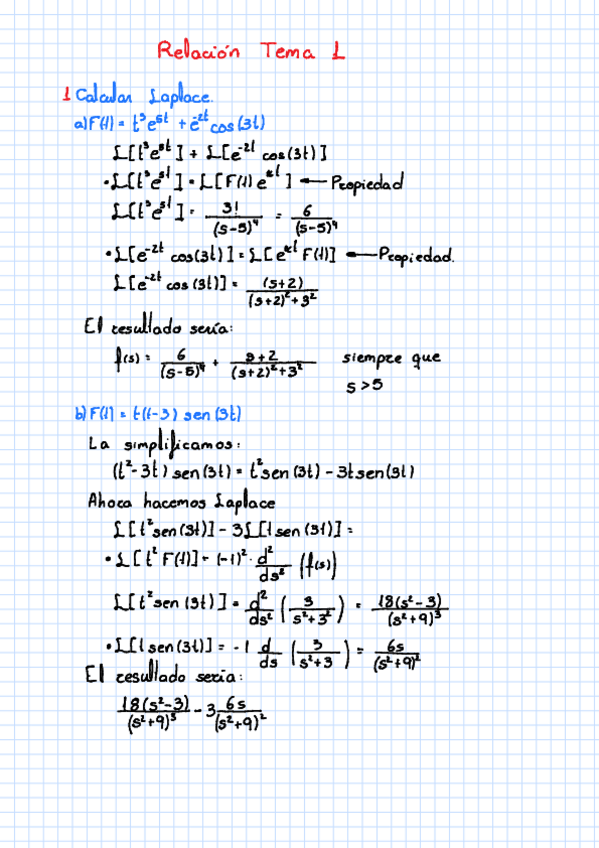 Relación Tema 1
1 Calcular Laplace.
a) F(t) = t³e⁵ᵗ + e⁻²ᵗ cos(3t)
L[t³e⁵ᵗ] + L[e⁻²ᵗ cos(3t)]
• L[t³e⁵ᵗ] = L[F(t)eᵅᵗ] ← Propiedad
L[t³e⁵ᵗ] = 3!/(s-5)⁴ = 6/(s-5)⁴
• L[e⁻²ᵗ cos(3t)] = L[eᵅᵗ F(t)] ← Propiedad.
L[e⁻²ᵗ cos(3t)] = (s+2)/((s+2)²+3²)
El resultado sería:
f(s) = 6/(s-5)⁴ + (s+2)/((s+2)²+3²) siempre que
s>5
b) F(t) = t(t-3) sen(3t)
La simplificamos:
(t²-3t) sen(3t) = t²sen(3t) - 3t sen(3t)
Ahora hacemos Laplace
L[t²sen(3t)] - 3L[t sen(3t)] =
• L[t² F(t)] = (-1)² · d²/ds² (f(s))
L[t²sen(3t)] = d²/ds² (3/(s²+3²)) = 18(s²-3)/(s²+9)³
• L[t sen(3t)] = -1 d/ds (3/(s²+3)) = 6s/(s²+9)²
El resultado sería:
18(s²-3)/(s²+9)³ - 3 6s/(s²+9)²